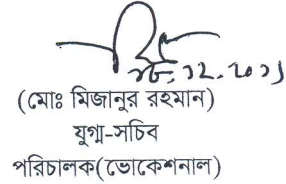 ২৮.১২.২০২১
(মোঃ মিজানুর রহমান)
যুগ্ম-সচিব
পরিচালক(ভোকেশনাল)